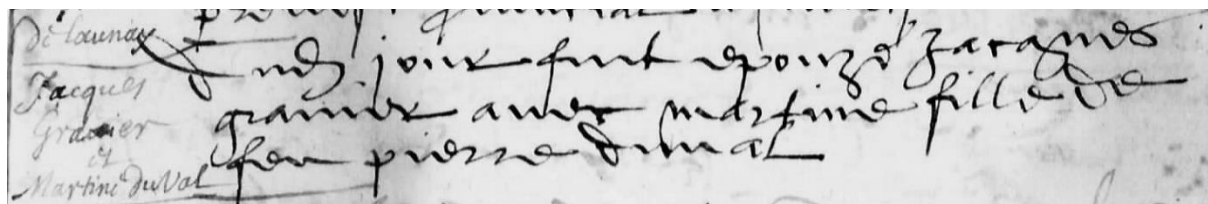 de launay
Jacques
Gravier
et
Martine du Val
jour fut epouzé Jacques
gravier avec martine fille de
feu pierre duval